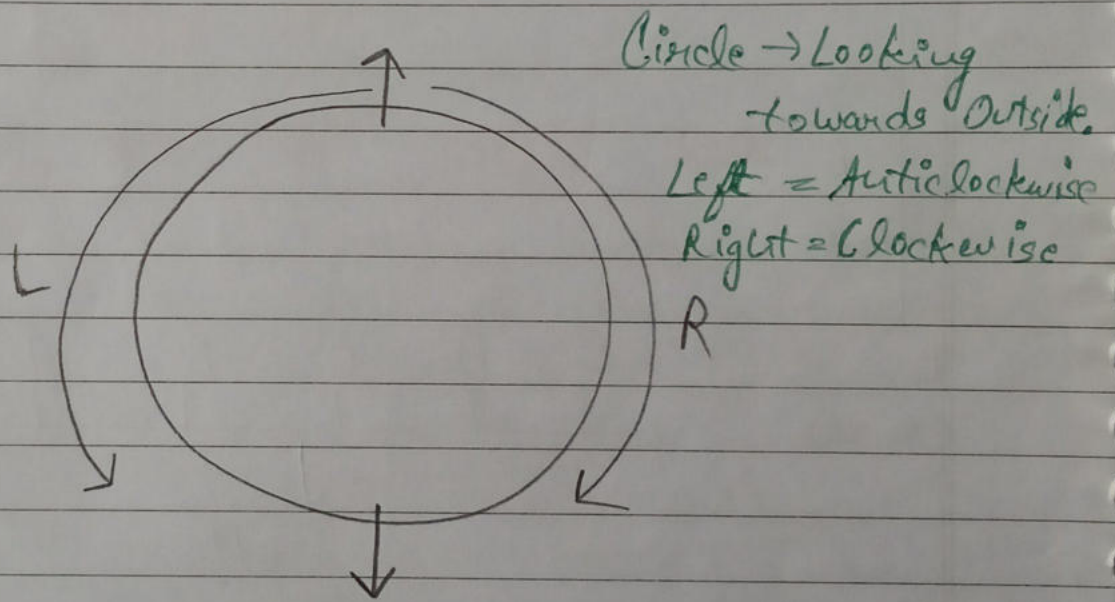 Circle → Looking
towards Outside.
Left = Anticlockwise
Right = Clockwise
L
R